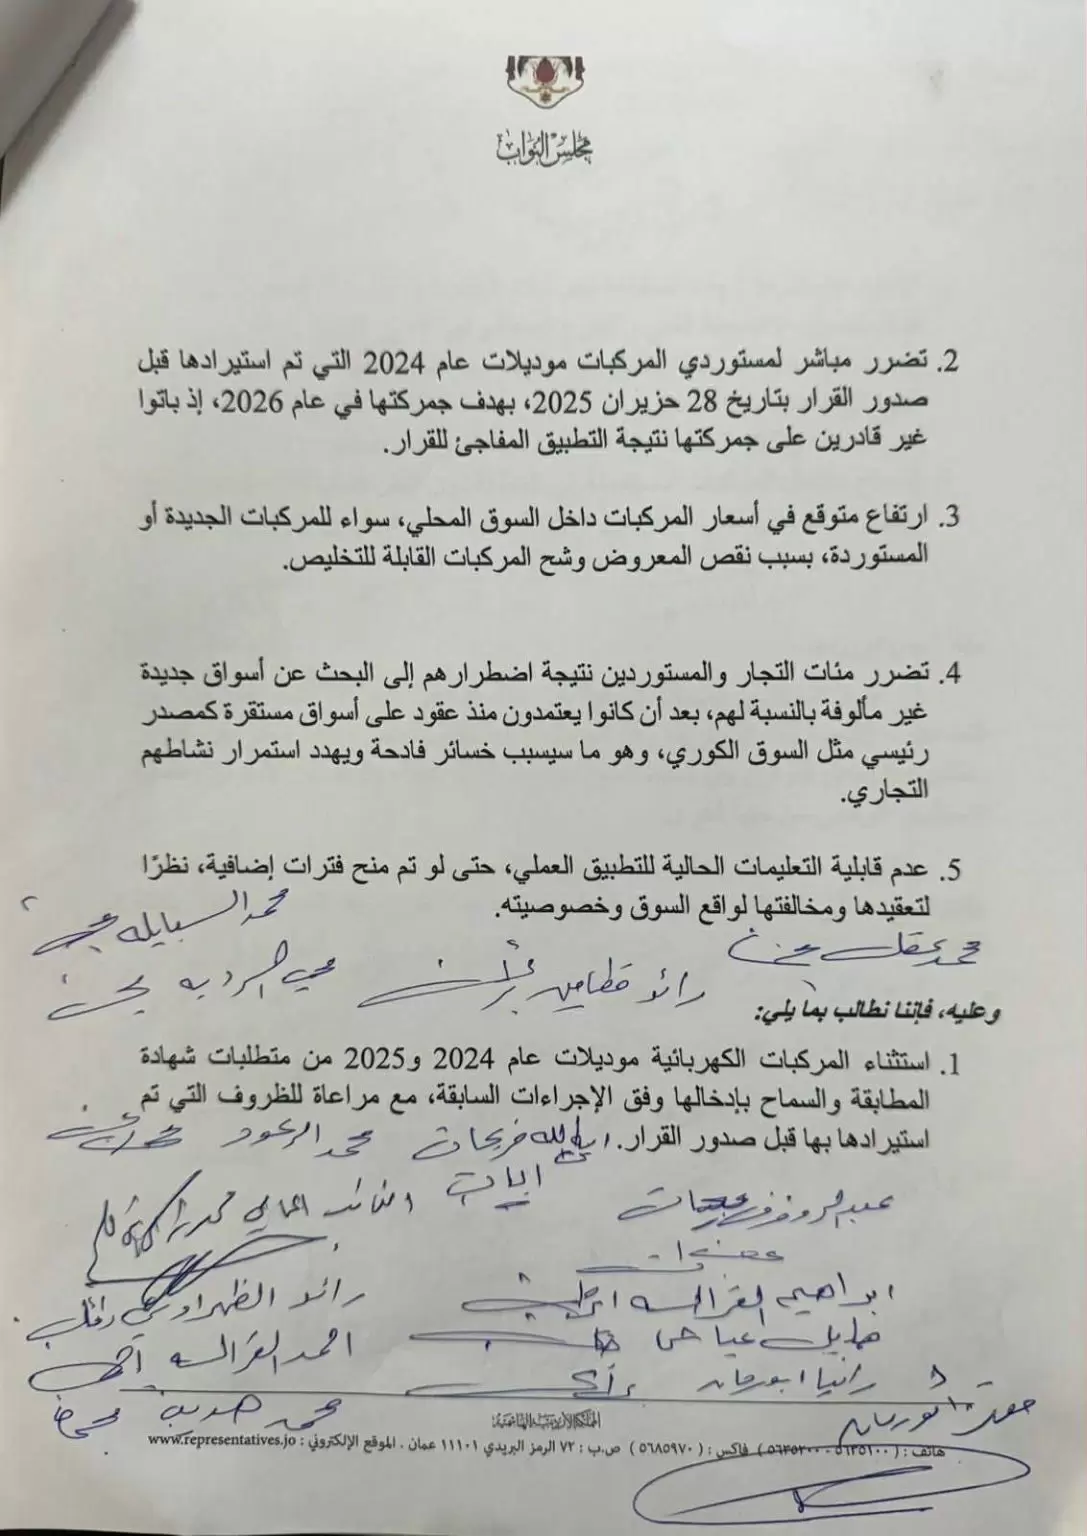 مجلس النواب
2. تضرر مباشر لمستوردي المركبات موديلات عام 2024 التي تم استيرادها قبل
صدور القرار بتاريخ 28 حزيران 2025، بهدف جمركتها في عام 2026، إذ باتوا
غير قادرين على جمركتها نتيجة التطبيق المفاجئ للقرار.
3. ارتفاع متوقع في أسعار المركبات داخل السوق المحلي، سواء للمركبات الجديدة أو
المستوردة، بسبب نقص المعروض وشح المركبات القابلة للتخليص.
4. تضرر مئات التجار والمستوردين نتيجة اضطرارهم إلى البحث عن أسواق جديدة
غير مألوفة بالنسبة لهم، بعد أن كانوا يعتمدون منذ عقود على أسواق مستقرة كمصدر
رئيسي مثل السوق الكوري، وهو ما سيسبب خسائر فادحة ويهدد استمرار نشاطهم
التجاري.
5. عدم قابلية التعليمات الحالية للتطبيق العملي، حتى لو تم منح فترات إضافية، نظرًا
لتعقيدها ومخالفتها لواقع السوق وخصوصيته.
محمد السبايله
محمد عقل
رائد قطامين
وعليه، فإننا نطالب بما يلي:
1. استثناء المركبات الكهربائية موديلات عام 2024 و2025 من متطلبات شهادة
المطابقة والسماح بإدخالها وفق الإجراءات السابقة، مع مراعاة للظروف التي تم
استيرادها بها قبل صدور القرار.
فريحات
محمد الرعود
رائد الظهراوي
ابراهيم القرالسه
هايل عياش
احمد القرالسه
رانيا ابورمان
محمد هديب
المملكة الأردنية الهاشمية
هاتف : (٥٦٣٥١٠٠ - ٥٦٣٥٢٠٠) فاكس : (٥٦٨٥٩٧٠) ص.ب : ٧٢ الرمز البريدي ١١١٠١ عمان . الموقع الإلكتروني : www.representatives.jo